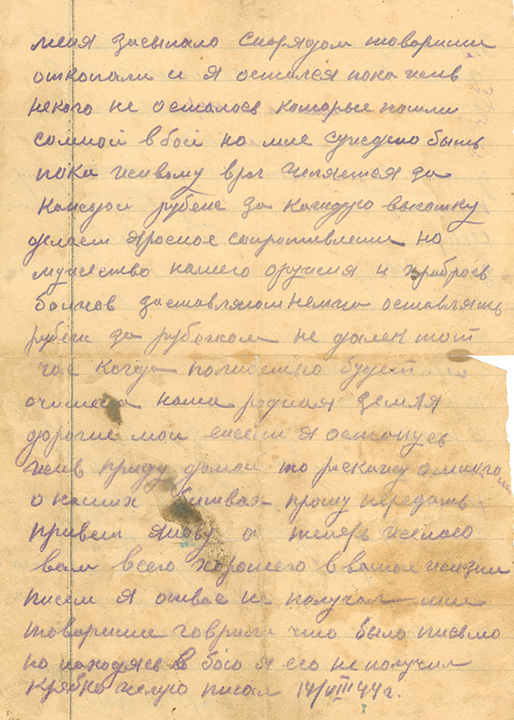 меня засыпало снорядом товарищи
откопали и я остался пока жив
некого не осталось которые пошли
сомной в бой но мне суждено быть
пока живому враг цепляется за
каждой рубеж за каждую высотку
делает яросное сопротивление но
мужество нашего оружия и храбрось
бойцов заставляют немца оставлять
рубеж за рубежом не далек тот
час когда полностью будет
очищена наша родная земля
дорогие мои если я останусь
жив приду домой то раскажу о много
о наших битвах прошу передать
привет а теперь желаю
вам всего хорошего в вашей жизни
писем я отвас не получал мне
товарищи говрили что было письмо
но находясь в бою я его не получил
крепко целую писал 14/VIII 44 г.